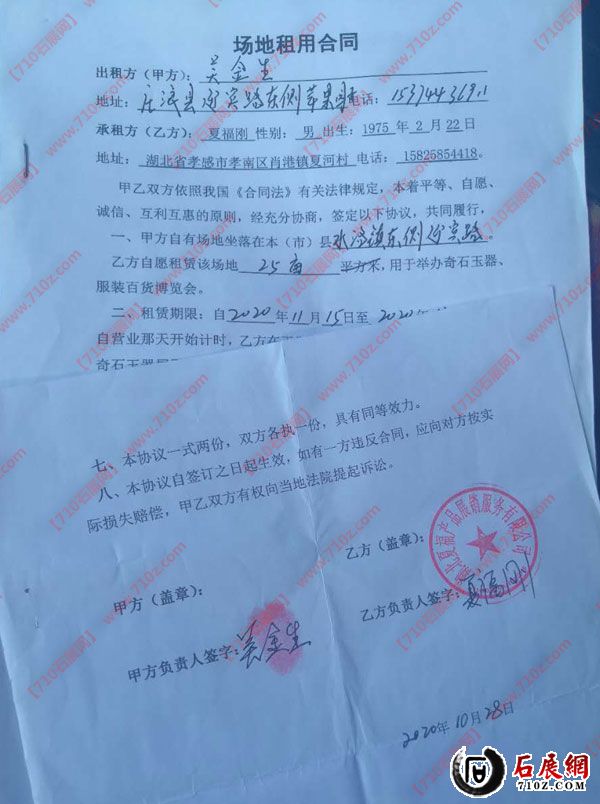 场地租用合同
出租方（甲方）：吴金生
地址：庄浪县迎宾路东侧苹果 电话：
承租方（乙方）：夏福刚 性别：男 出生：1975 年 2 月 22 日
地址：湖北省孝感市孝南区肖港镇夏河村 电话：15825854418。
甲乙双方依照我国《合同法》有关法律规定，本着平等、自愿、
诚信、互利互惠的原则，经充分协商，签定以下协议，共同履行，
一、甲方自有场地坐落在本（市）县水洛镇东侧迎宾路。
乙方自愿租赁该场地 25亩 平方米，用于举办奇石玉器、
服装百货博览会。
二、租赁期限：自2020年11月15日至2020年
自营业那天开始计时，乙方在
奇石玉器展
七、本协议一式两份，双方各执一份，具有同等效力。
八、本协议自签订之日起生效，如有一方违反合同，应向对方按实
际损失赔偿，甲乙双方有权向当地法院提起诉讼。
乙方（盖章）：
产品展销服务有限公司
甲方（盖章）：
乙方负责人签字：夏福刚
甲方负责人签字：吴金生
2020年10月28日
石展網
710z.com
【710石展网】www.710z.com